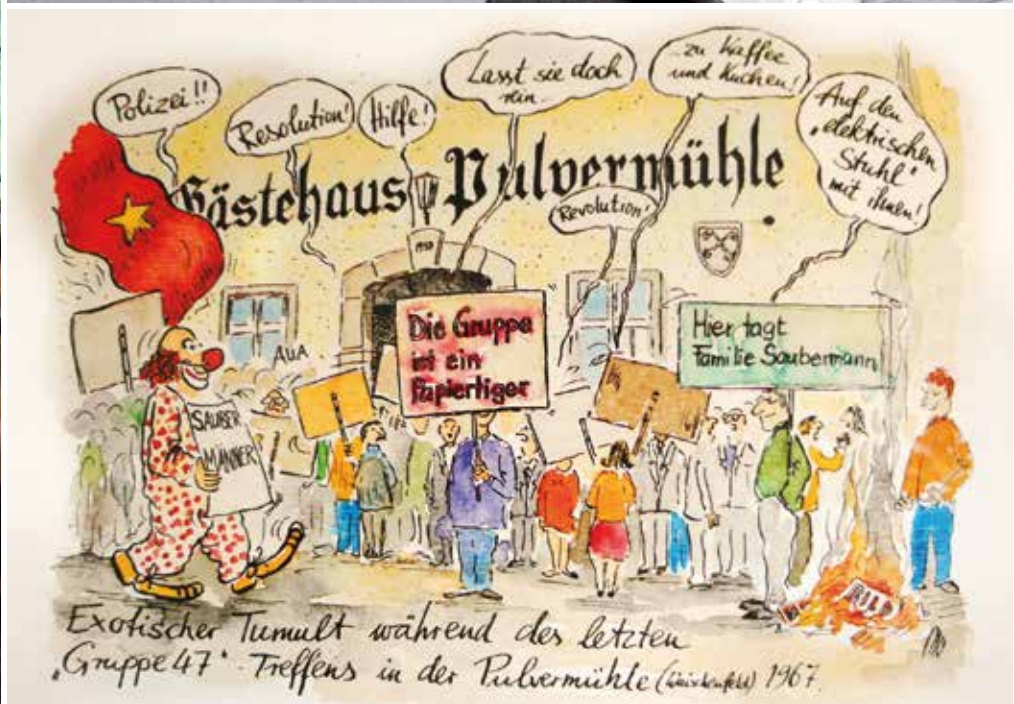 Polizei!!
Resolution!
Hilfe!
Lasst sie doch
rein.
...zu Kaffee
und Kuchen!
Auf den
"elektrischen
Stuhl"
mit ihnen!
Gästehaus Pulvermühle
Revolution!
AUA
Die Gruppe
ist ein
Papiertiger
Hier tagt
Familie Saubermann
SAUBER
MÄNNER
BILD
Exotischer Tumult während des letzten
"Gruppe 47"-Treffens in der Pulvermühle (Waischenfeld) 1967.